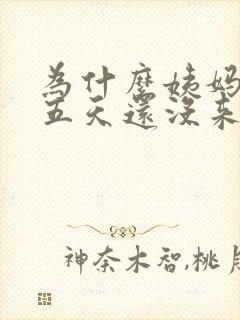 為什麼姨媽
五天還沒來
神奈木智,桃月